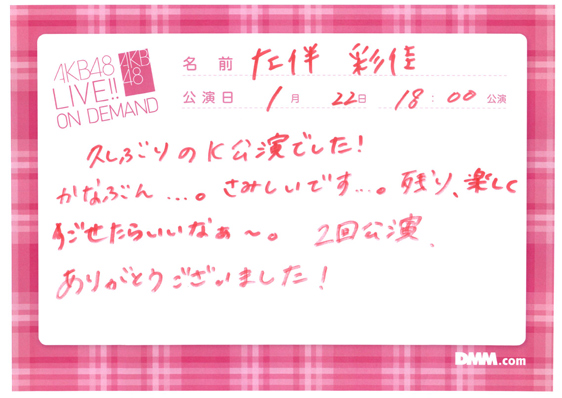 AKB48
LIVE!!
ON DEMAND
AKB
48
名前 左伴 彩佳
公演日 1月 22日 18:00 公演
久しぶりのK公演でした!
かなぶん…。さみしいです…。残り、楽しく
すごせたらいいなぁ〜。 2回公演、
ありがとうございました!
DMM.com